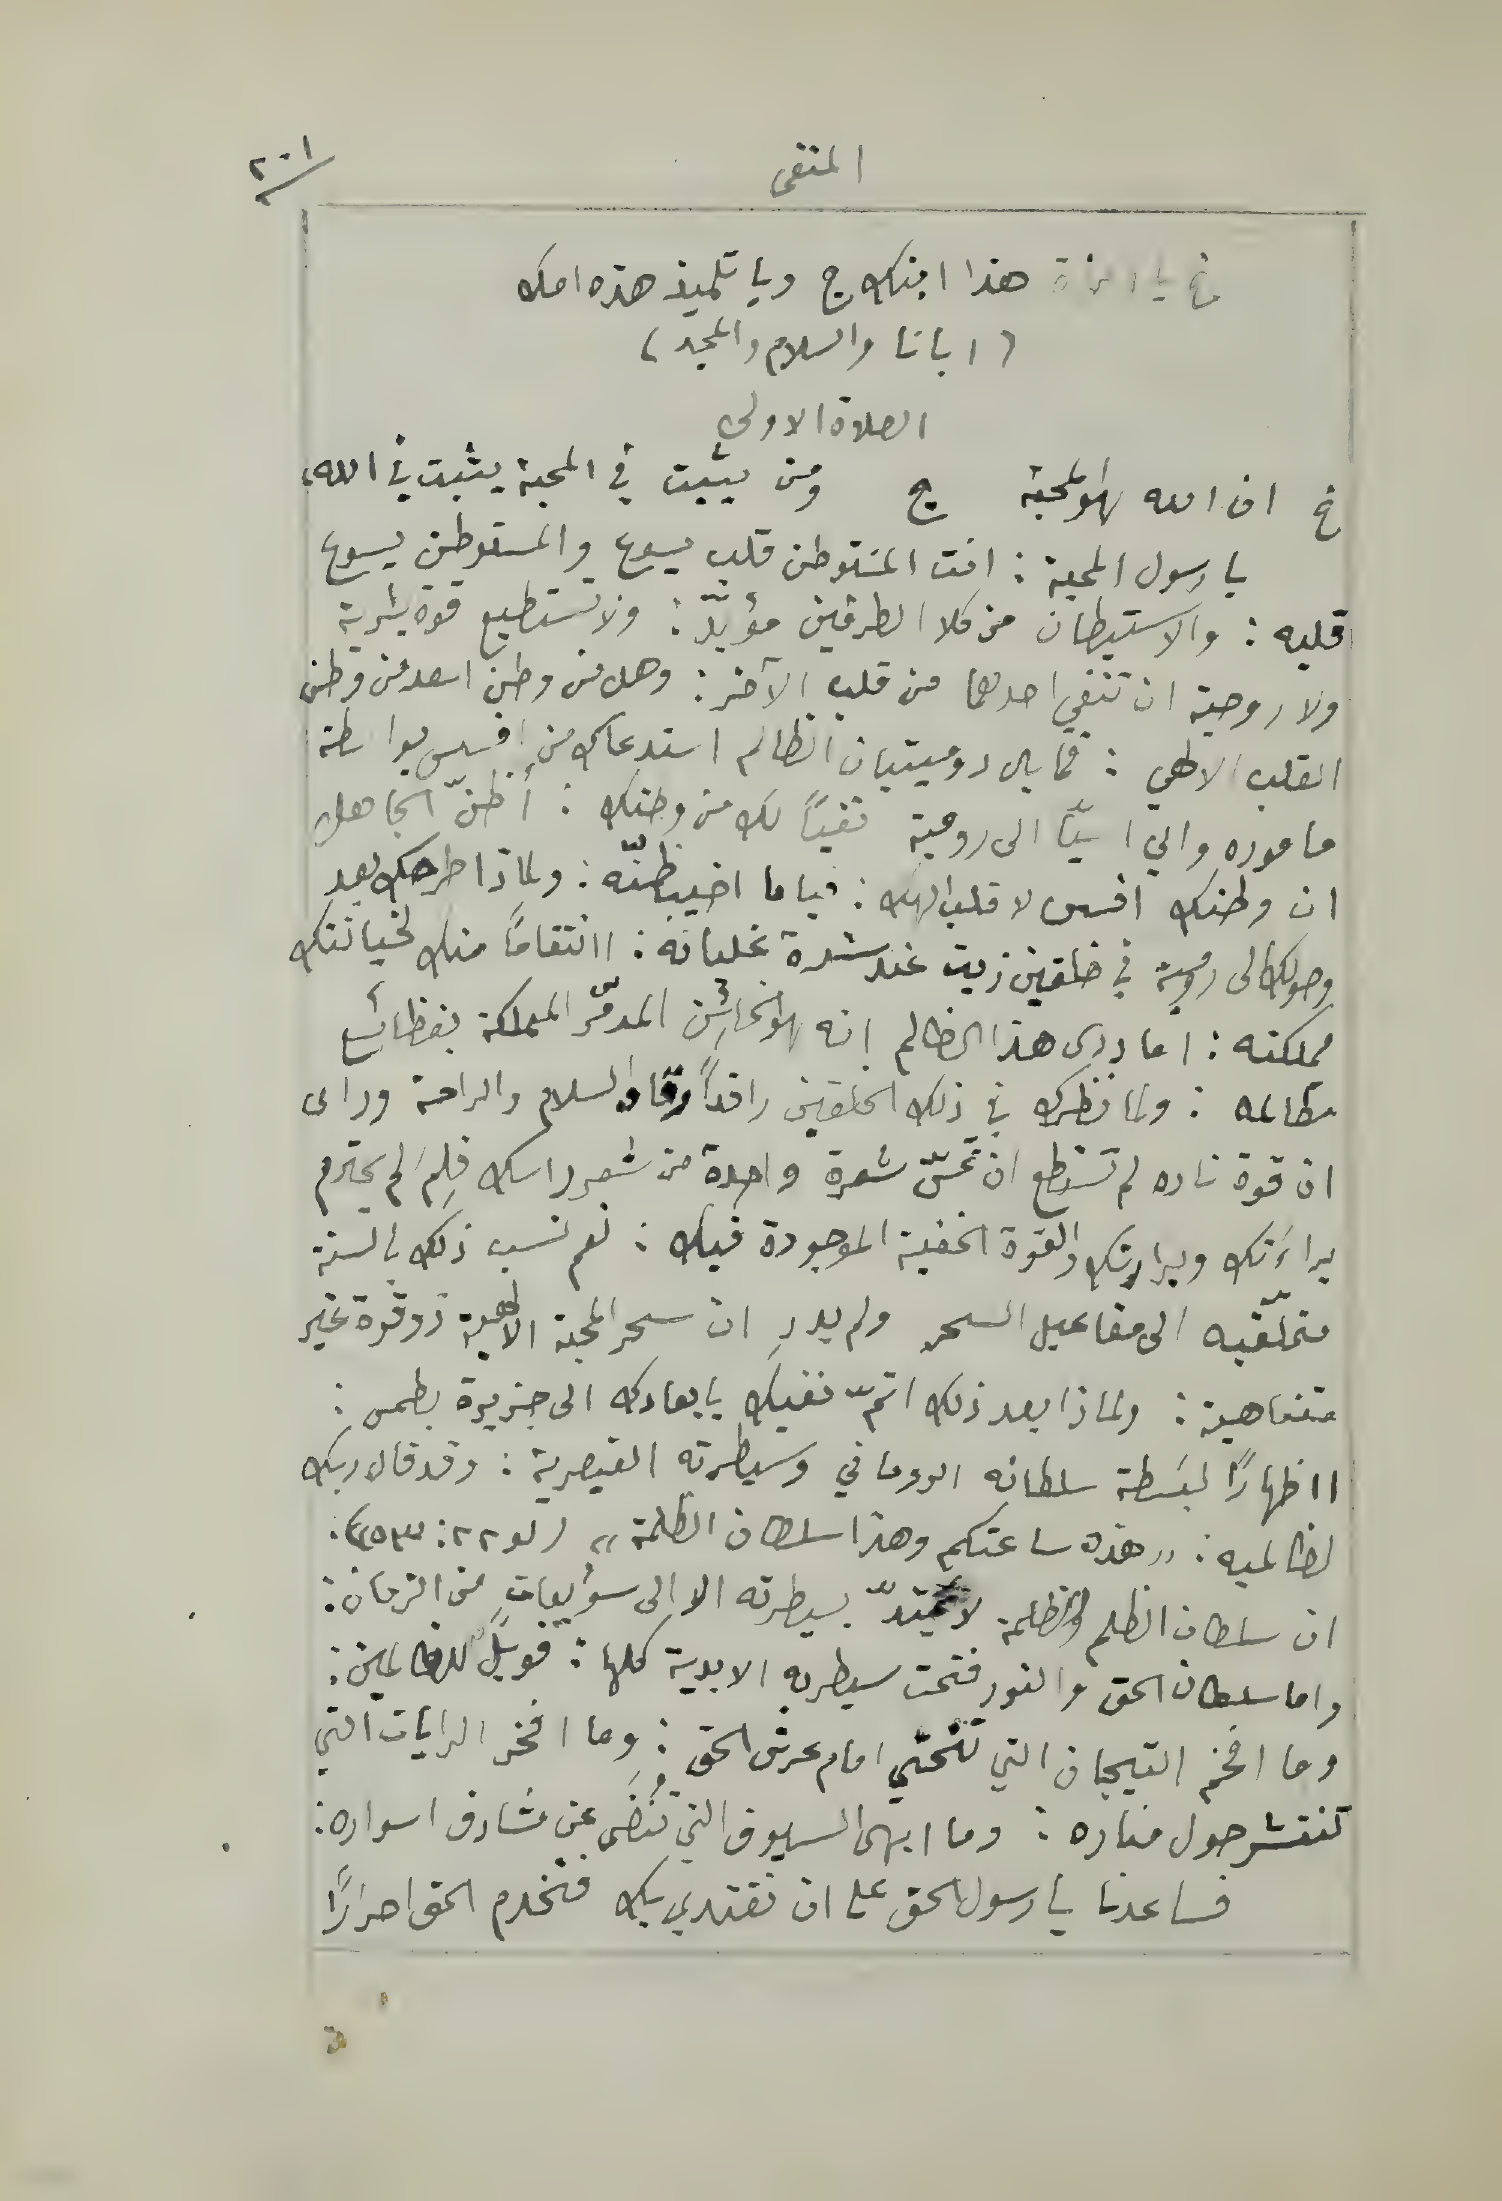 المنفى
٢٠١
خ يا امرأة هذا ابنك ج ويا تلميذ هذه امك
(ابانا والسلام والمجد)
الصلاة الاولى
خ ان الله لهو المحبة ج ومن يثبت في المحبة يثبت في الله،
يا رسول المحبة : انت المستوطن قلب يسوع والمستوطن يسوع
قلبه : والاستيطان من كلا الطرفين مؤبّدٌ : ولا تستطيع قوة بشرية
ولا روحية ان تنفي احدهما من قلب الآخر : وهل من وطن اسعد من وطن
القلب الالهي : فما بال دوميتيان الظالم استدعاك من افسس بواسطة
ماموره والي اسيّا الى رومية نفيًا لك من وطنك : أظنّ الجاهل
ان وطنك افسس لا قلب الهك : فياما اخيب ظنّه : ولماذا طرحك بعد
وصولك الى رومية في خلقين زيت عند شدة غليانه : اانتقامًا منك لخيانتك
مملكته : اما درى هذا الظالم انه لهو الخائن المدمّر المملكة بفظائع
مظالمه : ولما نظرك في ذلك الخلقين راقدًا رقاد السلام والراحة وراى
ان قوة ناره لم تستطع ان تمسّ شعرة واحدة من شعر راسك فلِمَ لم يحترم
براءَتك وبرارتك والقوة الخفية الموجودة فيك : نعم نسب ذلك بالسنة
متملّقيه الى مفاعيل السحر ولم يدرِ ان سحر المحبة الالهية ذو قوة غير
متناهية : ولماذا بعد ذلك اتمّ نفيك بابعادك الى جزيرة بطمس :
ااظهارًا لبسَطة سلطانه الروماني وسيطرته القيصرية : وقد قال ربك
لظالميه : «هذه ساعتكم وهذا سلطان الظلمة» (لو ٢٢ : ٥٣) :
ان سلطان الظلم والظلمة لا يمتدّ بسيطرته الا الى سويعاتٍ من الزمان :
واما سلطان الحق والنور فتحت سيطرته الابدية كلها : فويلٌ للظالمين :
وما افخم التيجان التي تنحني امام عرش الحق : وما افخر الرايات التي
تنتشر حول مناره : وما ابهى السيوف التي تُنضَى عن مشارف اسواره :
فساعدنا يا رسول الحق على ان نقتدي بك فنخدم الحق احرارًا